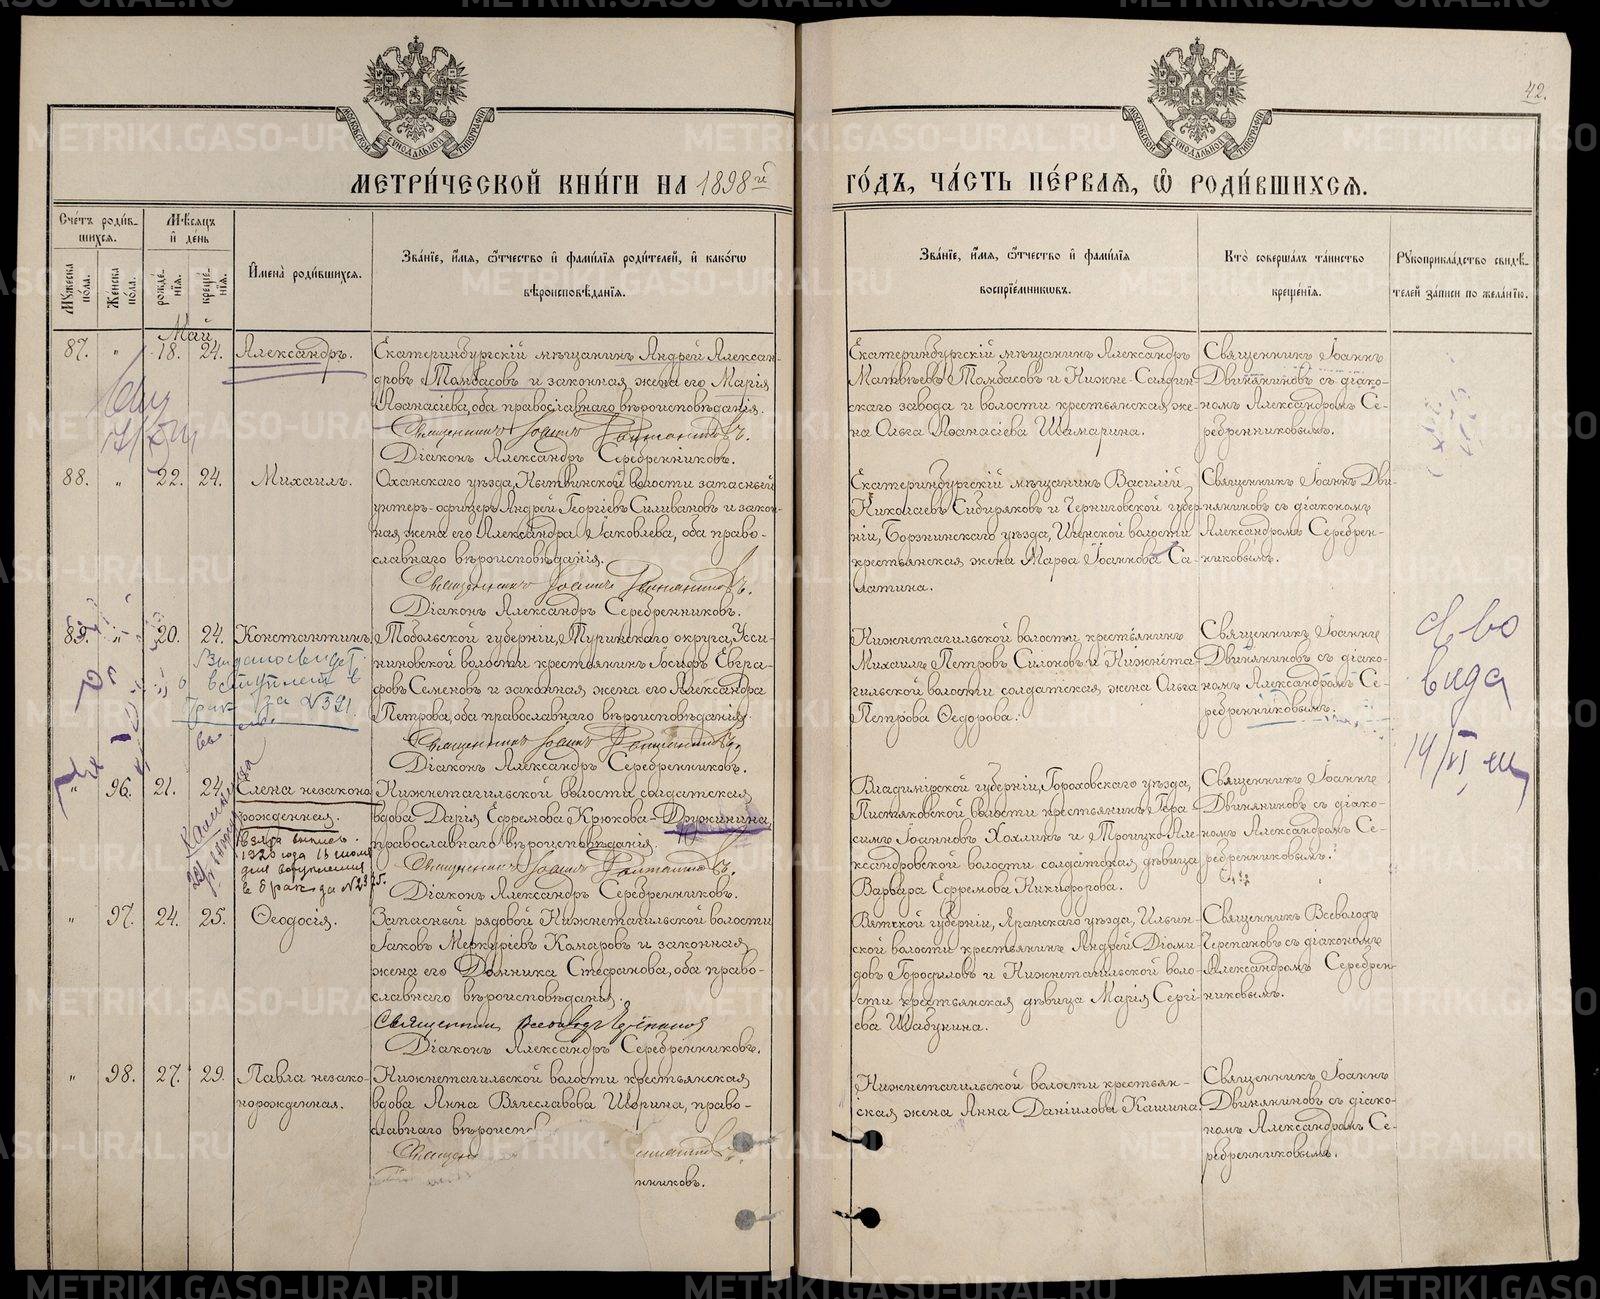 42.
МЕТРИ́ЧЕСКОЙ КНИ́ГИ НА 1898й
ГО́ДЪ, ЧА́СТЬ ПЕ́РВАЯ, Ѿ РОДИ́ВШИХСЯ.
МОСКОВСКОЙ СѴНОДАЛЬНОЙ ТИПОГРАФІИ
МОСКОВСКОЙ СѴНОДАЛЬНОЙ ТИПОГРАФІИ
Сче́тъ роди́в-
шихся.
Мѣ́сяцъ
и де́нь
Му́жеска по́ла.
Же́нска по́ла.
рожде́-
нїя.
креще́-
нїя.
И҆мена̀ роди́вшихся.
Зва́нїе, и҆́мя, ѻ҆́тчество и҆ фами́лїя роди́телей, и҆ како́гѡ
вѣроисповѣ́данїя.
Зва́нїе, и҆́мя, ѻ҆́тчество и҆ фами́лїя
воспрїе́мникѡвъ.
Кто̀ соверша́лъ та́инство
креще́нїя.
Рꙋкоприкла́дство свидѣ́-
телей за́писи по жела́нїю.
Май
87. " 18. 24. Александръ.
Екатеринбургскій мѣщанинъ Андрей Алексан-
дровъ Томбасовъ и законная жена его Марія
Аѳанасіева, оба православнаго вѣроисповѣданія.
Священникъ Іоаннъ Двиняниновъ.
Діаконъ Александръ Серебренниковъ.
Екатеринбургскій мѣщанинъ Александръ
Матвѣевъ Томбасовъ и Нижне-Салдин-
скаго завода и волости крестьянская же-
на Ольга Аѳанасіева Шамарина.
Священникъ Іоаннъ
Двиняниновъ съ діако-
номъ Александромъ Се-
ребренниковымъ.
88. " 22. 24. Михаилъ.
Оханскаго уѣзда, Нытвинской волости запасный
унтеръ-офицеръ Андрей Георгіевъ Силивановъ и закон-
ная жена его Александра Іаковлева, оба право-
славнаго вѣроисповѣданія.
Священникъ Іоаннъ Двиняниновъ.
Діаконъ Александръ Серебренниковъ.
Екатеринбургскій мѣщанинъ Василій
Николаевъ Сибиряковъ и Черниговской губер-
ніи, Борзнинскаго уѣзда, Иченской волости
крестьянская жена Марѳа Іоаннова Са-
латина.
Священникъ Іоаннъ Дви-
няниновъ съ діакономъ
Александромъ Серебрен-
никовымъ.
89. " 20. 24. Константинъ.
Тобольской губерніи, Туринскаго округа, Усе-
ниновской волости крестьянинъ Іосифъ Евгра-
фовъ Семеновъ и законная жена его Александра
Петрова, оба православнаго вѣроисповѣданія.
Священникъ Іоаннъ Двиняниновъ.
Діаконъ Александръ Серебренниковъ.
Выдано свидет.
о вступлен. в
брак за №321.
Нижнетагильской волости крестьянинъ
Михаилъ Петровъ Силоновъ и Нижнета-
гильской волости солдатская жена Ольга
Петрова Ѳедорова.
Священникъ Іоаннъ
Двиняниновъ съ діако-
номъ Александромъ Се-
ребренниковымъ.
Св-во
вида
14/VI
" 96. 21. 24. Елена незаконо-
рожденная.
Нижнетагильской волости солдатская
вдова Дарія Ефремова Крюкова-Дружинина
православнаго вѣроисповѣданія.
Священникъ Іоаннъ Двиняниновъ.
Діаконъ Александръ Серебренниковъ.
1920 года 15 июля
для вступления
в брак за №2325.
Владимірской губерніи, Гороховскаго уѣзда,
Пистяковской волости крестьянинъ Гера-
симъ Іоанновъ Хохлинъ и Троицко-Але-
ксандровской волости солдатская дѣвица
Варвара Ефремова Никифорова.
Священникъ Іоаннъ
Двиняниновъ съ діако-
номъ Александромъ Се-
ребренниковымъ.
" 97. 24. 25. Ѳеодосія.
Запасный рядовой Нижнетагильской волости
Іаковъ Меркуріевъ Комаровъ и законная
жена его Домника Стефанова, оба право-
славнаго вѣроисповѣданія.
Священникъ Всеволодъ Черепановъ
Діаконъ Александръ Серебренниковъ.
Вятской губерніи, Яранскаго уѣзда, Ильин-
ской волости крестьянинъ Андрей Діоми-
довъ Городиловъ и Нижнетагильской воло-
сти крестьянская дѣвица Марія Сергі-
ева Шабунина.
Священникъ Всеволодъ
Черепановъ съ діакономъ
Александромъ Серебрен-
никовымъ.
" 98. 27. 29. Павла незако-
норожденная.
Нижнетагильской волости крестьянская
вдова Анна Вячеславова Ширина, право-
славнаго вѣроиспов
Священ
нниковъ.
Нижнетагильской волости крестьян-
ская жена Анна Даніилова Кашина.
Священникъ Іоаннъ
Двиняниновъ съ діако-
номъ Александромъ Се-
ребренниковымъ.
METRIKI.GASO-URAL.RU